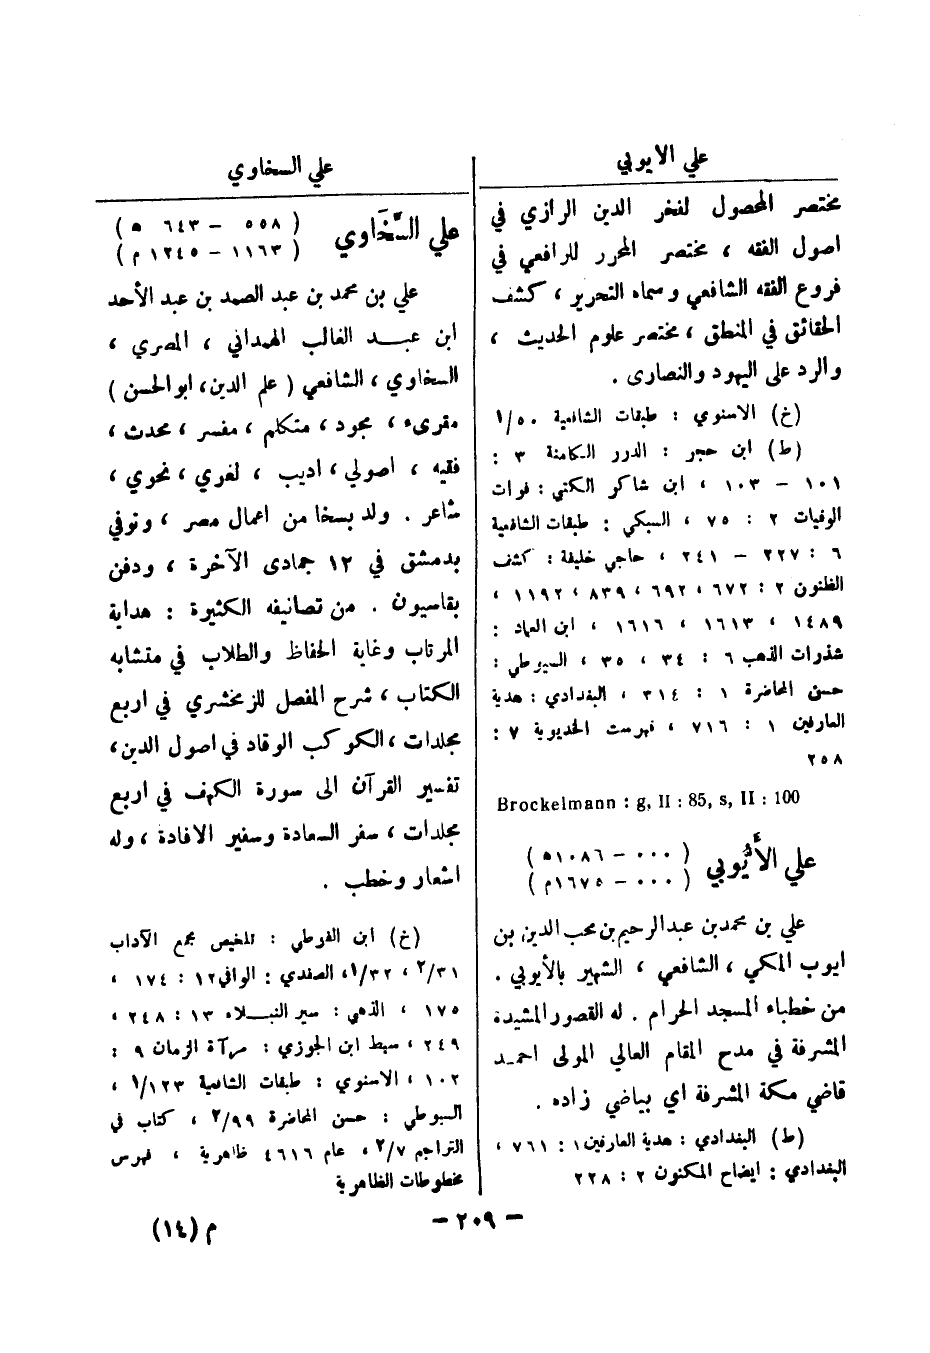 علي الايوبي
مختصر المحصول لفخر الدين الرازي في
اصول الفقه ، مختصر المحرر للرافعي في
فروع الفقه الشافعي وسماه التحرير ، كشف
الحقائق في المنطق ، مختصر علوم الحديث ،
والرد على اليهود والنصارى .
(خ) الاسنوي : طبقات الشافعية ١/٥٠
(ط) ابن حجر : الدرر الكامنة ٣ :
١٠١ – ١٠٣ ، ابن شاكر الكتبي : فوات
الوفيات ٢ : ٧٥ ، السبكي : طبقات الشافعية
٦ : ٢٢٧ – ٢٤١ ، حاجي خليفة : كشف
الظنون ٢ : ٦٧٢ ، ٦٩٢ ، ٨٣٩ ، ١١٩٢ ،
١٤٨٩ ، ١٦١٣ ، ١٦١٦ ، ابن العماد :
شذرات الذهب ٦ : ٣٤ ، ٣٥ ، السيوطي :
حسن المحاضرة ١ : ٣١٤ ، البغدادي : هدية
العارفين ١ : ٧١٦ ، فهرست الخديوية ٧ :
٢٥٨
Brockelmann : g, II : 85, s, II : 100
علي الأيُّوبي
( ٠٠٠ – ١٠٨٦ ه )
( ٠٠٠ – ١٦٧٥ م )
علي بن محمد بن عبدالرحيم بن محب الدين بن
ايوب المكي ، الشافعي ، الشهير بالأيوبي .
من خطباء المسجد الحرام . له القصور المشيدة
المشرفة في مدح المقام العالي المولى احمد
قاضي مكة المشرفة اي بياضي زاده .
(ط) البغدادي : هدية العارفين ١ : ٧٦١ ،
البغدادي : ايضاح المكنون ٢ : ٢٢٨
علي السخاوي
علي السَّخَاوي
( ٥٥٨ – ٦٤٣ ه )
( ١١٦٣ – ١٢٤٥ م )
علي بن محمد بن عبد الصمد بن عبد الأحد
ابن عبد الغالب الهمداني ، المصري ،
السخاوي ، الشافعي ( علم الدين، ابو الحسن )
مقرىء ، مجود ، متكلم ، مفسر ، محدث ،
فقيه ، اصولي ، اديب ، لغوي ، نحوي ،
شاعر . ولد بسخا من اعمال مصر ، وتوفي
بدمشق في ١٢ جمادى الآخرة ، ودفن
بقاسيون . من تصانيفه الكثيرة : هداية
المرتاب وغاية الحفاظ والطلاب في متشابه
الكتاب ، شرح المفصل للزمخشري في اربع
مجلدات ، الكوكب الوقاد في اصول الدين ،
تفسير القرآن الى سورة الكهف في اربع
مجلدات ، سفر السعادة وسفير الافادة ، وله
اشعار وخطب .
(خ) ابن الفوطي : تلخيص مجمع الآداب
٢/٣١ ، ١/٣٢، الصفدي : الوافي ١٢ : ١٧٤ ،
١٧٥ ، الذهبي : سير النبلاء ١٣ : ٢٤٨ ،
٢٤٩ ، سبط ابن الجوزي : مرآة الزمان ٩ :
١٠٢ ، الاسنوي : طبقات الشافعية ١/١٢٣ ،
السيوطي : حسن المحاضرة ٢/٩٩ ، كتاب في
التراجم ٢/٧ ، عام ٤٦١٦ ظاهرية ، فهرس
مخطوطات الظاهرية
– ٢٠٩ –
م (١٤)